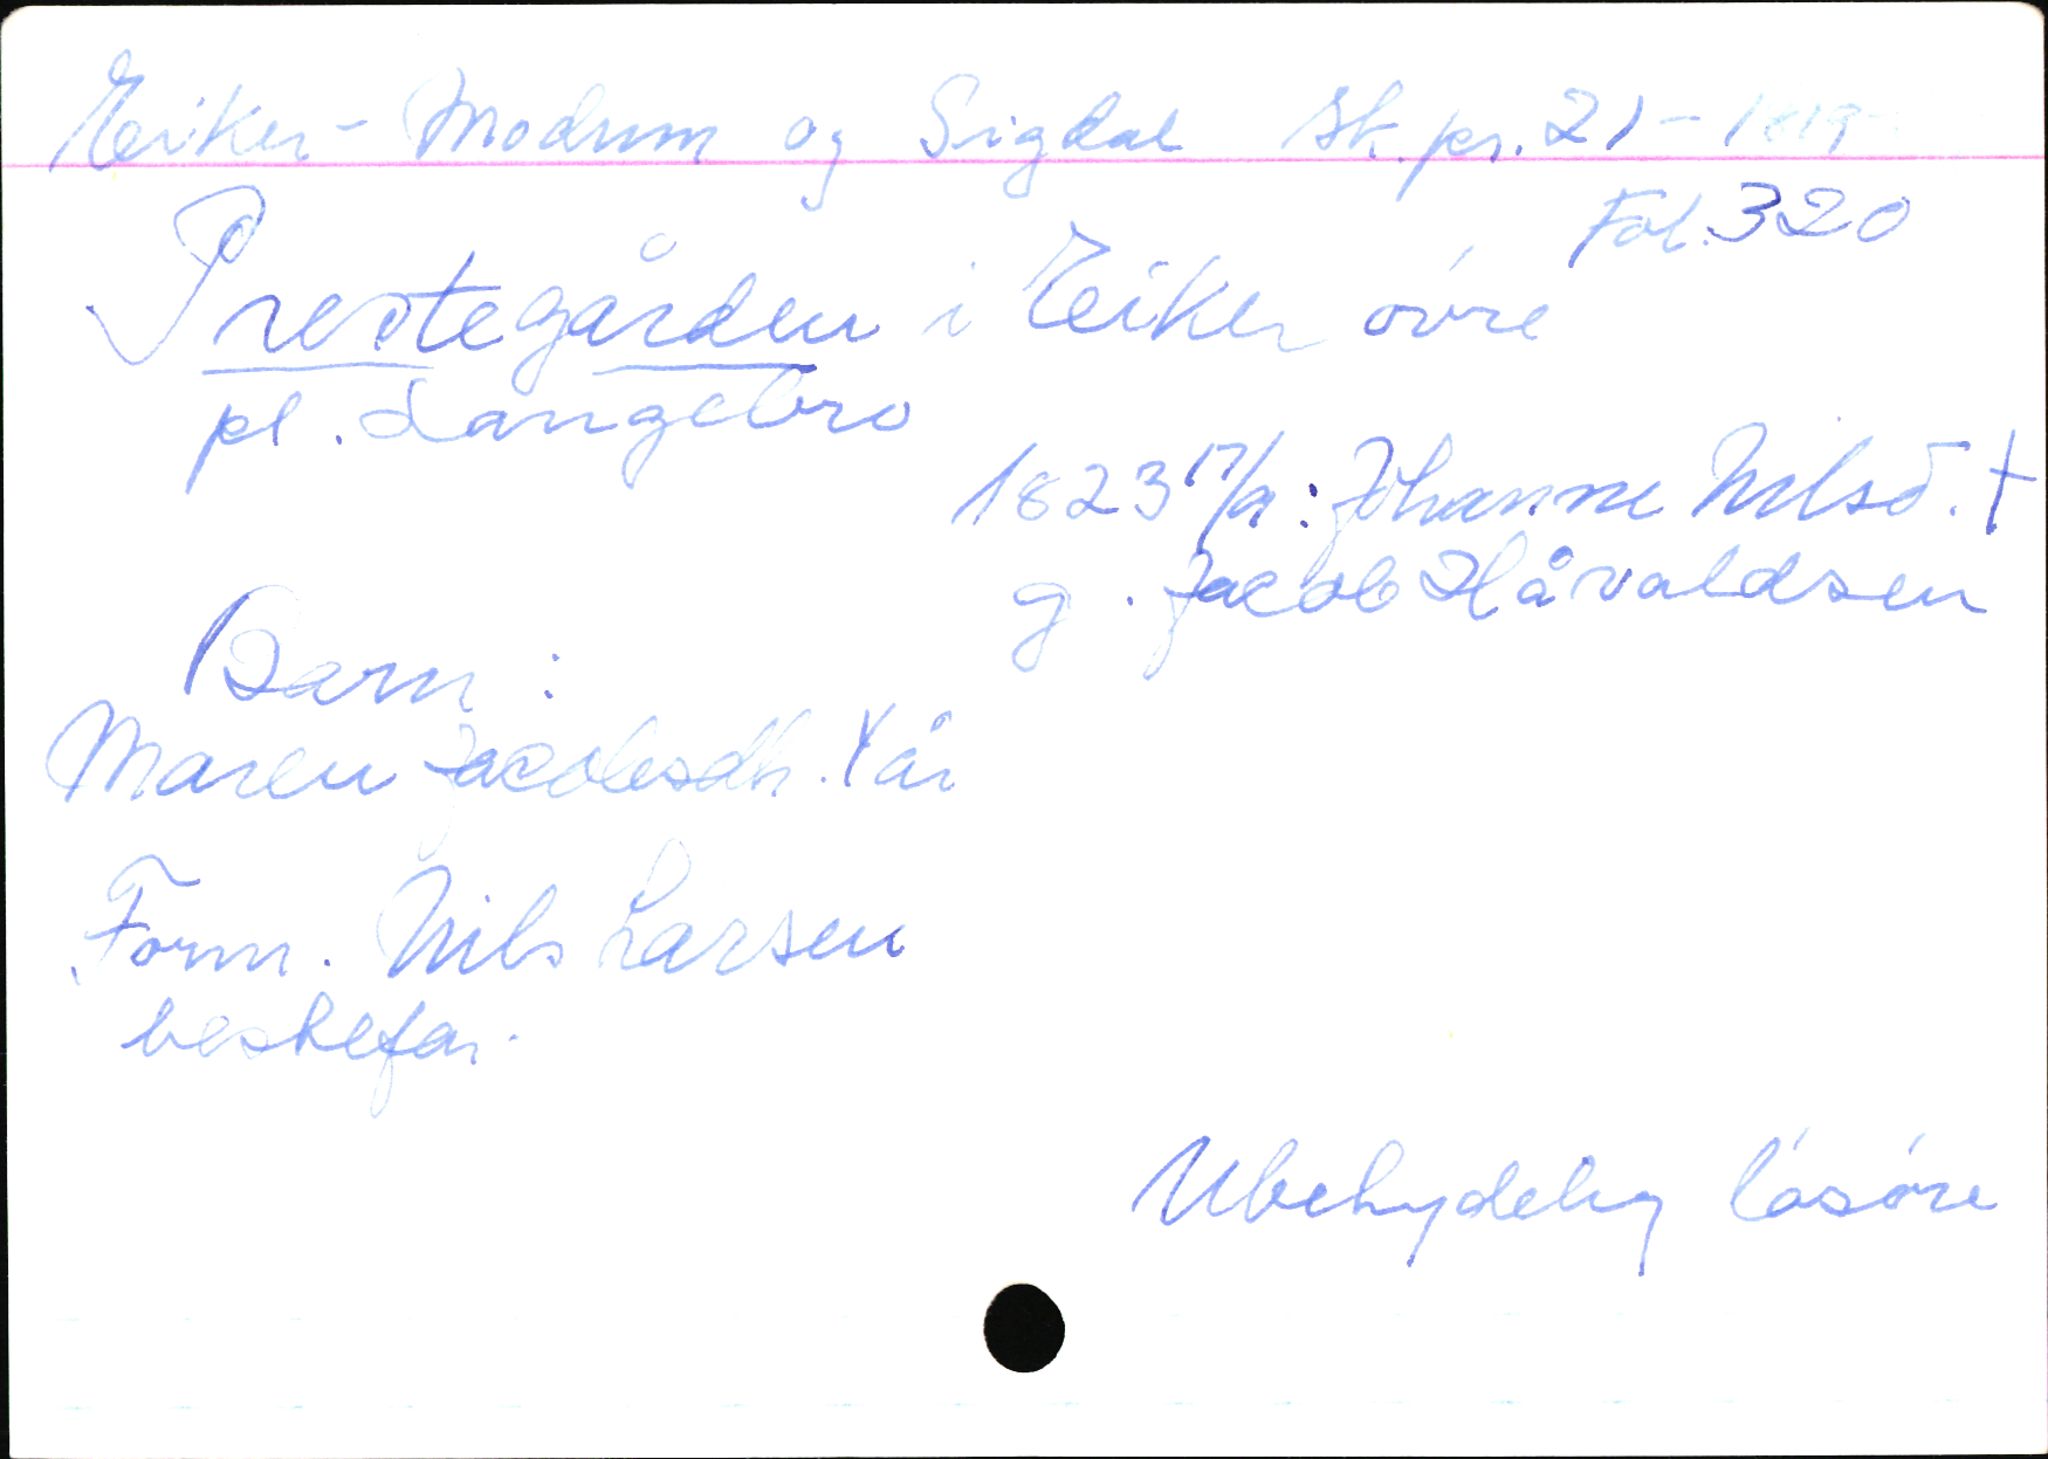 Eiker - Modum og Sigdal sk.pr. 21 - 1819
Fol. 320
Prestegården i Eiker övre
pl. Langebro
1823 17/9 : Johanne Nilsd. †
g. Jacob Håvaldsen
Barn :
Maren Jacobsdtr. år
Form. Nils Larsen
bestefar.
Ubetydelig lösöre